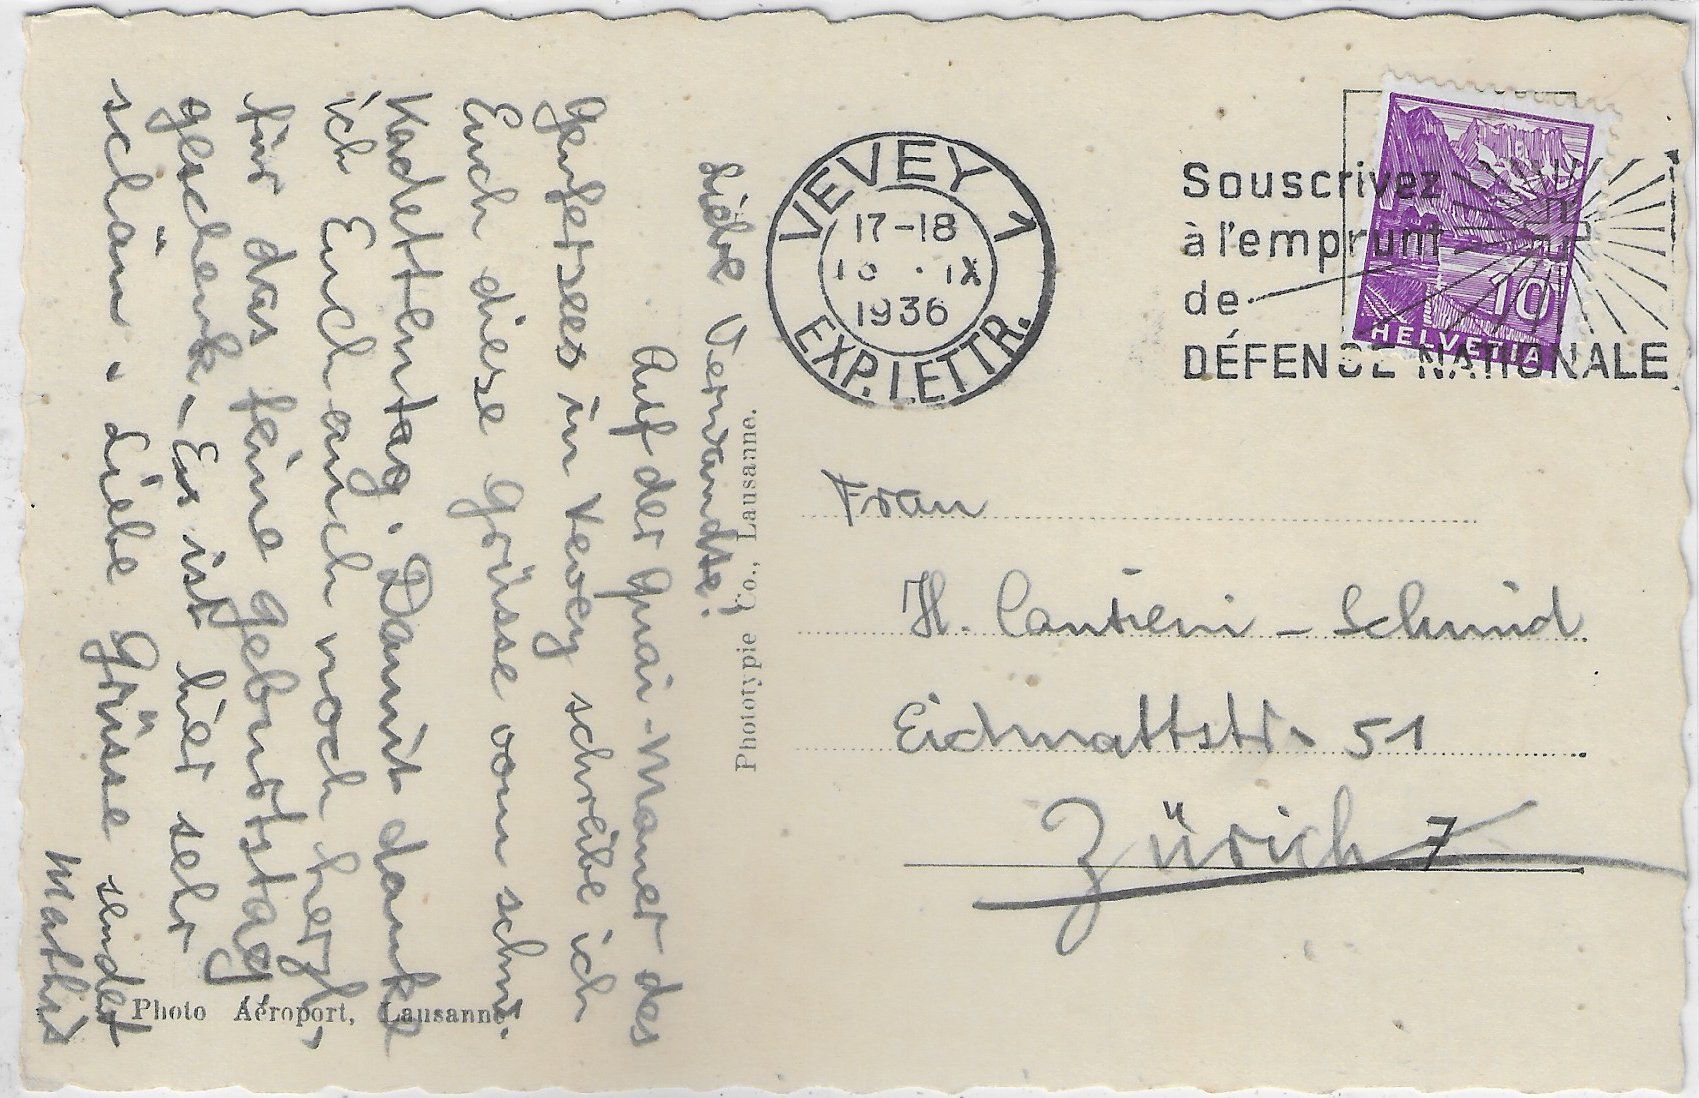 Liebe Verwandte!
Auf der Quai-Mauer des
Genfersees in Vevey schreibe ich
Euch diese Grüsse vom schw.
Kadettentag. Damit danke
ich Euch auch noch herzl.
für das feine Geburtstag,
geschenk. Es ist hier sehr
schön. Liebe Grüsse sendet
Mathis
Photo Aéroport, Lausanne
Phototypie Co., Lausanne.
VEVEY 1
17-18
IX
1936
EXP. LETTR.
Souscrivez
à l'emprunt
de
DÉFENSE NATIONALE
10
HELVETIA
Frau
H. Cantieni-Schmid
Eidmattstr. 51
Zürich 7